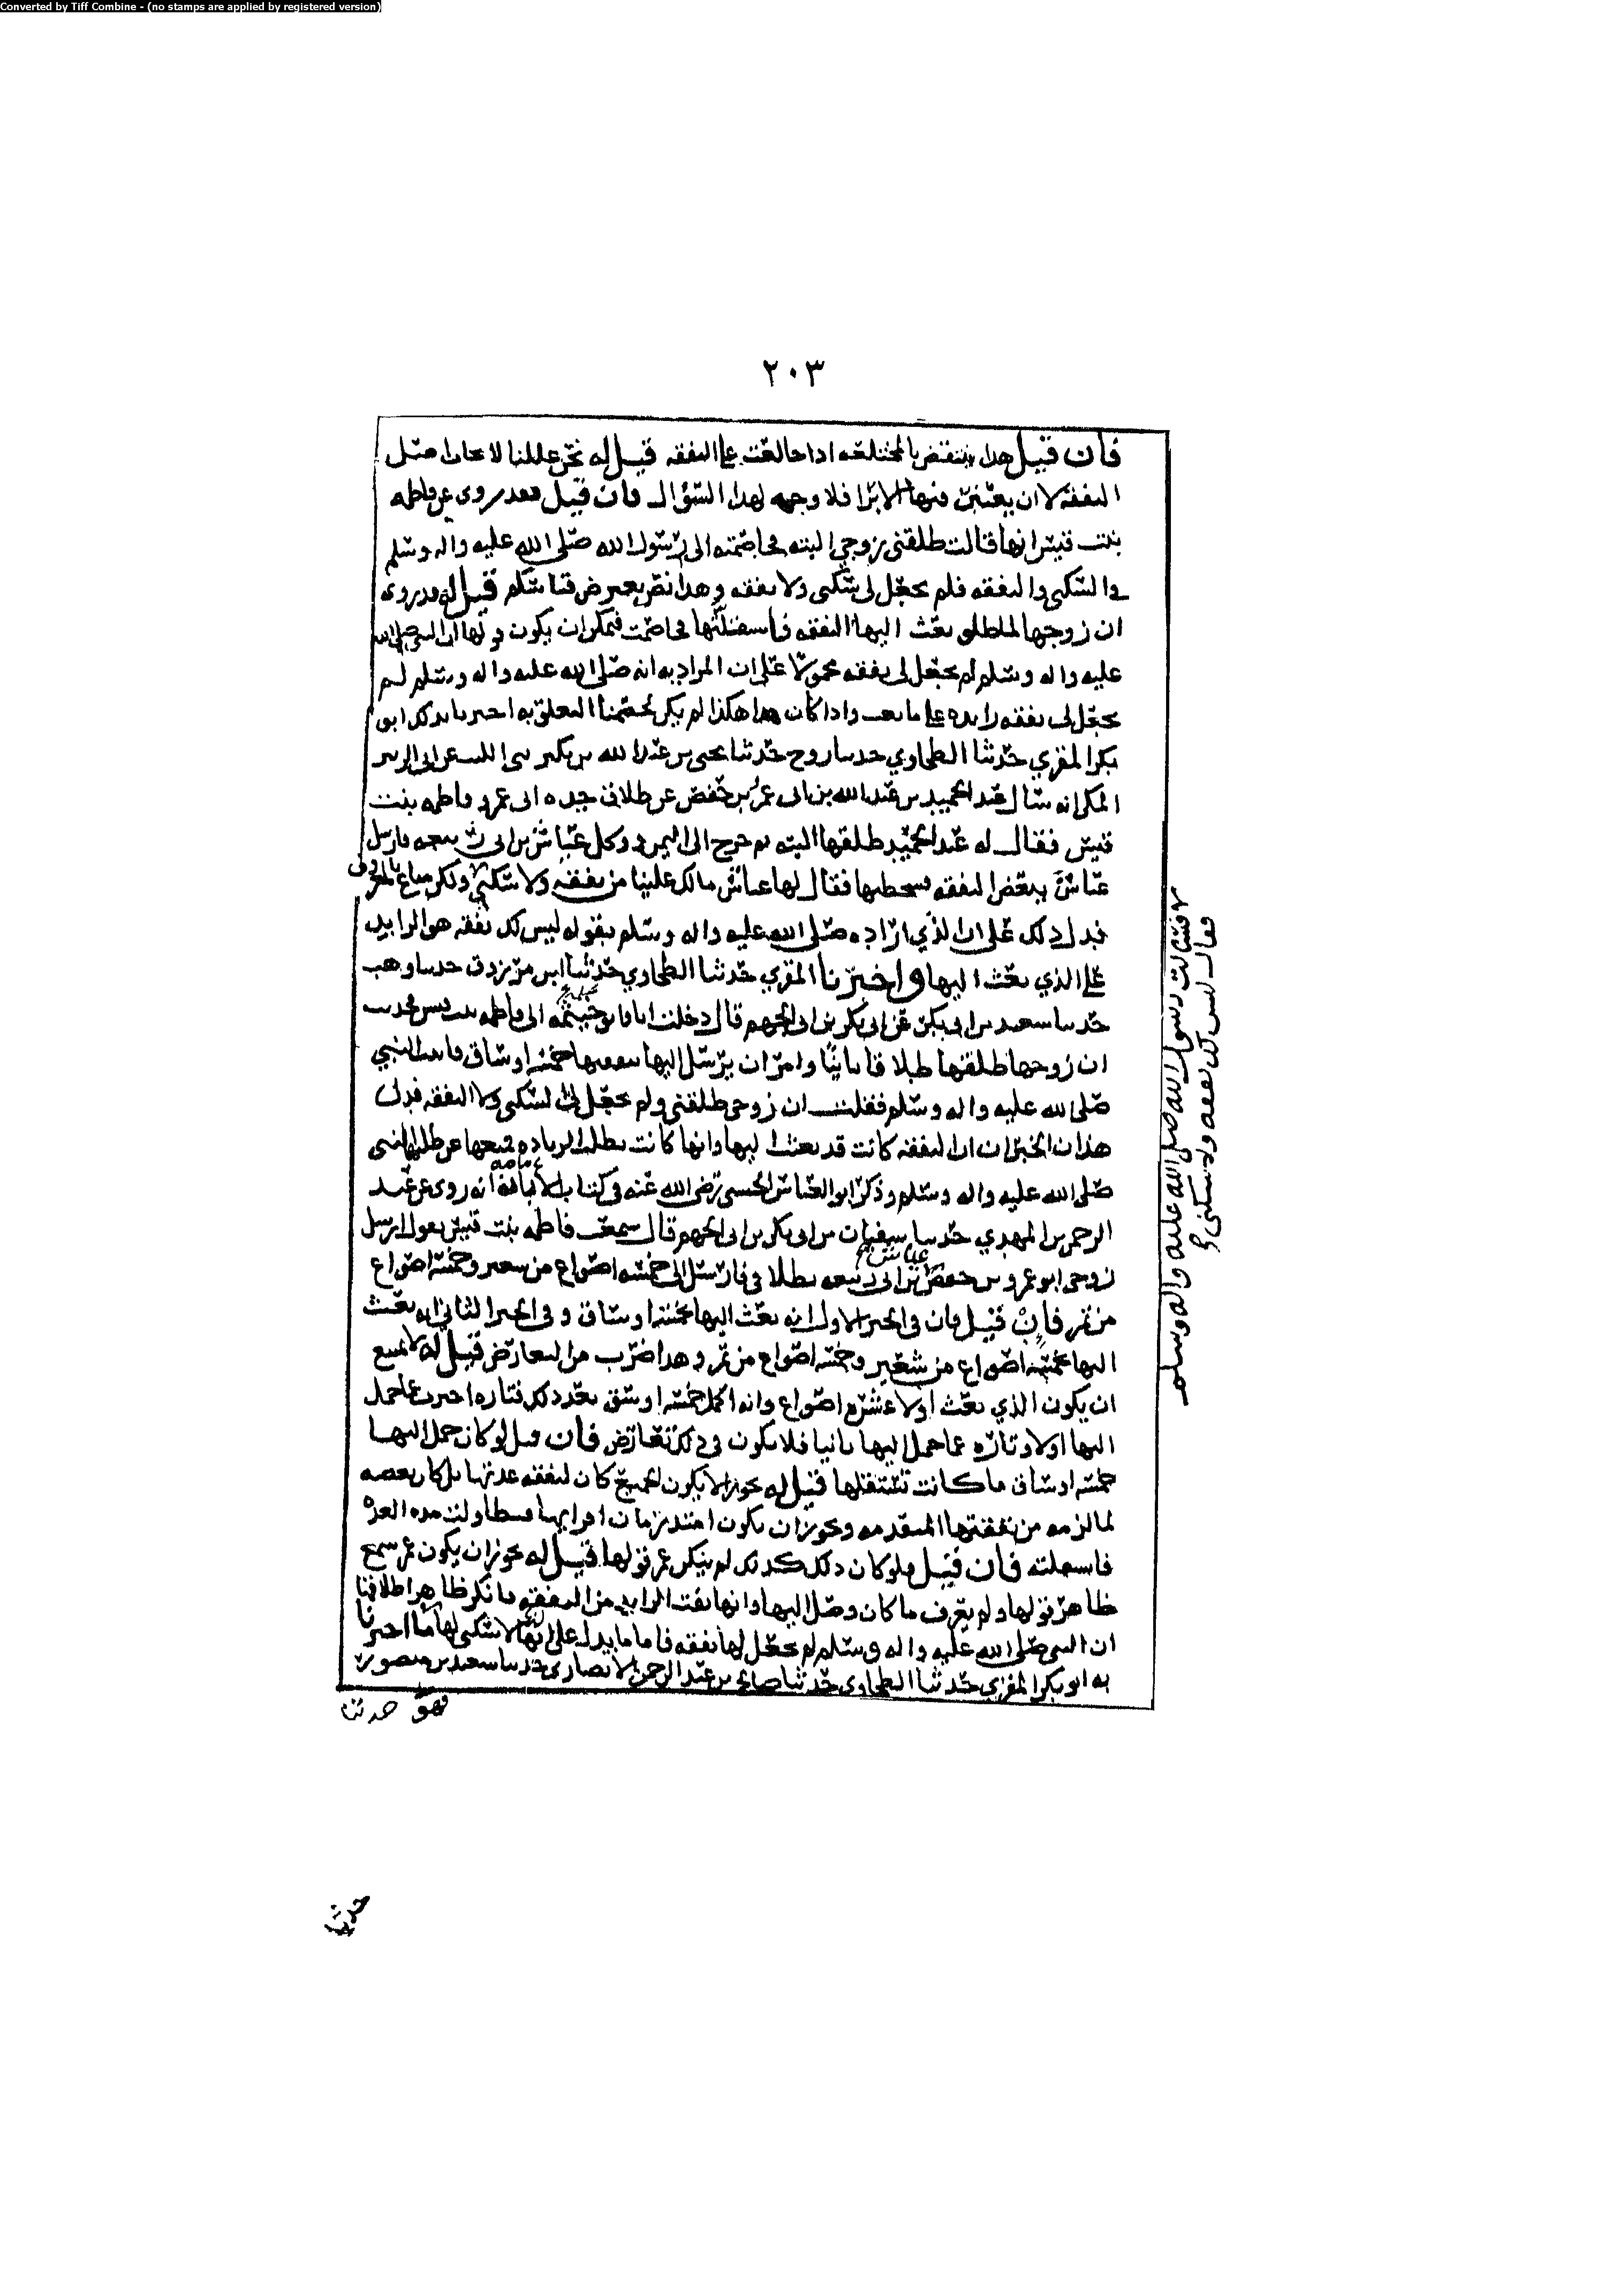 Converted by Tiff Combine - (no stamps are applied by registered version)
٢٠٣
فان قيل هذا ينتقض بالمختلعه اذا خالعت على النفقه قيل له نحن عللنا لا يجاب مثل
النفقه لا ان يعتبر فيها الابرا فلا وجه لهذا السؤال فان قيل فقد روي عن فاطمه
بنت قيس انها قالت طلقني زوجي البته فخاصمته الى رسول الله صلى الله عليه واله وسلم
في السكنى والنفقه فلم يجعل لي سكنى ولا نفقه وهذا نص يعترض قياسكم قيل له قد روي
ان زوجها لما طلق بعث اليها النفقه فاستقلتها فخاصمت فيمكن ان يكون قولها ان النبي صلى الله
عليه واله وسلم لم يجعل لي نفقه محمولا على ان المراد به انه صلى الله عليه واله وسلم لم
يجعل لي نفقه زايده على ما بعث واذا كان هذا هكذا لم يكن لخصمنا التعلق به اخبرنا بذلك ابو
بكر المقري حدثنا الطحاوي حدثنا روح حدثنا يحيى بن عبد الله بن بكير حدثني الليث عن ابي الزبير
المكي انه سال عبد الحميد بن عبد الله بن ابي عمرو بن حفص عن طلاق جده ابي عمرو فاطمه بنت
قيس فقال له عبد الحميد طلقها البته ثم خرج الى اليمن ووكل عياش بن ابي ربيعه فارسل
عياش ببعض النفقه فسخطتها فقال لها عياش مالك علينا من نفقه ولا سكنى ولكن متاع بالمعروف
فدل ذلك على ان الذي اراده صلى الله عليه واله وسلم بقوله ليس لك نفقه هو الزايد
على الذي بعث اليها واخبرنا المقري حدثنا الطحاوي حدثنا ابن مرزوق حدثنا وهب
حدثنا سعيد بن ابي بكر عن ابي بكر بن ابي الجهم قال دخلت انا وابو سلمه الى فاطمه بنت قيس فحدثت
ان زوجها طلقها طلاقا باينا وامر ان يرسل اليها بنفقتها خمسه اوساق فاتت النبي
صلى الله عليه واله وسلم فقلت ان زوجي طلقني ولم يجعل لي السكنى ولا النفقه فدل
هذان الخبران ان النفقه كانت قد بعثت اليها وانها كانت تطلب الزياده فمنعها عن طلبها النبي
صلى الله عليه واله وسلم وذكر ابو العباس الحسني رضي الله عنه في كتاب انه روى عن عبد
الرحمن بن المهدي حدثنا سفيان عن ابي بكر بن ابي الجهم قال سمعت فاطمه بنت قيس تقول ارسل
زوجي ابو عمرو بن حفص عياش بن ابي ربيعه بطلاقي فارسل الي خمسه اصواع من شعير وخمسه اصواع
من تمر فان قيل فان في الخبر الاول انه بعث اليها بخمسه اوساق وفي الخبر الثاني انه بعث
اليها بخمسه اصواع من شعير وخمسه اصواع من تمر وهذا ضرب من التعارض قيل له لا يمتنع
ان يكون الذي بعث اولا عشره اصواع وانه اكمل خمسه اوسق بعد ذلك فتاره اخبرت عما حمل
اليها اولا وتاره عما حمل اليها ثانيا فلا يكون في ذلك تعارض فان قيل لو كان حمل اليها
خمسه اوساق ما كانت تستقلها قيل له يجوز الا يكون الجميع كان لنفقه عدتها بل كان بعضه
لما لزمه من نفقتها المتقدمه ويجوز ان يكون امتد زمان اقرايها فتطاولت مده العده
فاستقلته فان قيل فلو كان ذلك كذلك لم ينكر عمر قولها قيل له يجوز ان يكون عمر سمع
ظاهر قولها ولم يعرف ما كان وصل اليها وانها نفت الزايد من النفقه فانكر ظاهر اطلاقها
ان النبي صلى الله عليه واله وسلم لم يجعل لها نفقه فاما ما يدل على انها لا سكنى لها ما اخبرنا
به ابو بكر المقري حدثنا الطحاوي حدثنا صالح بن عبد الرحمن الانصاري حدثنا سعيد بن منصور
فهو حدثنا
فسالت رسول الله صلى الله عليه واله وسلم
فقال ليس لك نفقه ولا سكنى
حدثنا